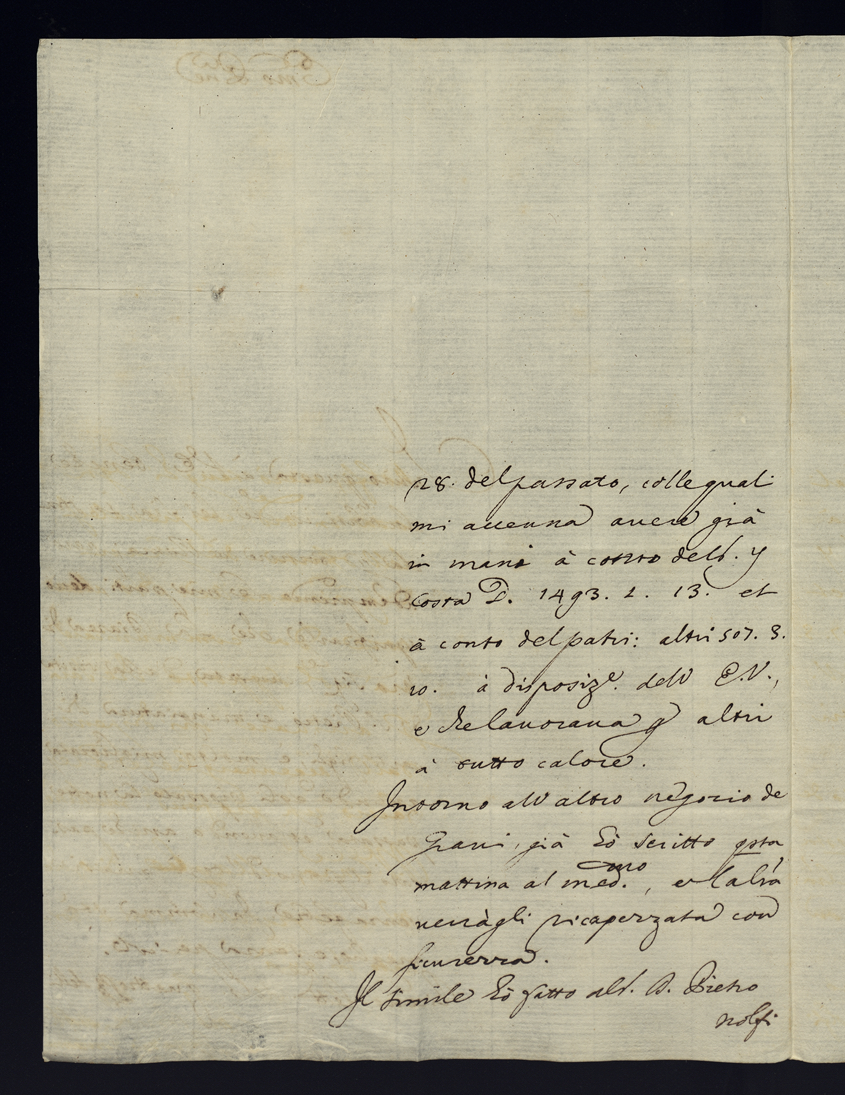 28. del passato, colle quali
mi accenna avere già
in mani à conto del S. y
Costa D. 1493. 2. 13. et
à conto del patri: altri 507. 3.
10. à disposiz.e dell' E.V.,
e che lavorava p altri
à tutto calore.
Intorno all' altro negozio de
Grani, già hò scritto qsta
mattina al med.mo, e l'altra
verràgli ricapezzata con
sicurezza.
Il simile hò fatto al S. D. Pietro
nolfi